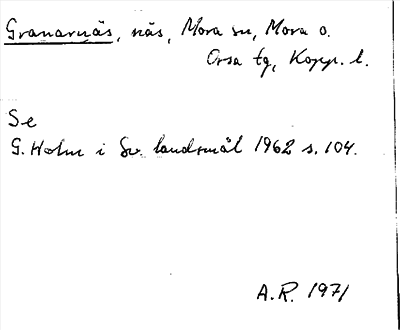 Granarnäs, näs, Mora sn, Mora o.
Orsa tg, Kopp. l.
Se
G. Holm i Sv. landsmål 1962 s. 104.
A.R. 1971